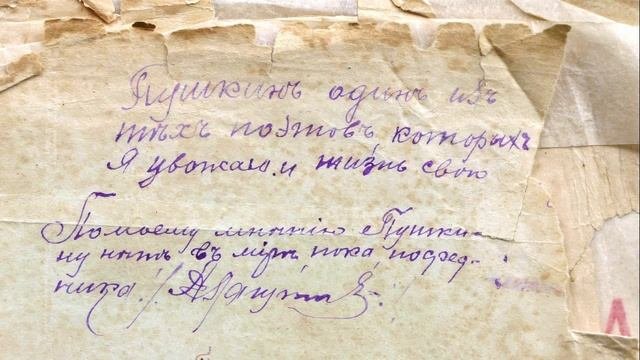 Пушкинъ одинъ изъ
тѣхъ поэтовъ которыхъ
Я уважаю и жизнь свою
Помоему мнѣнію Пушки-
ну нѣтъ въ мірѣ пока посред-
ника!